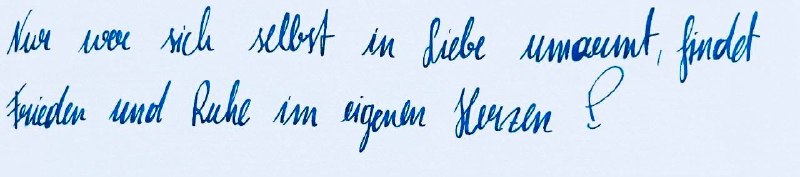 Nur wer sich selbst in Liebe umarmt, findet
Frieden und Ruhe im eigenen Herzen!